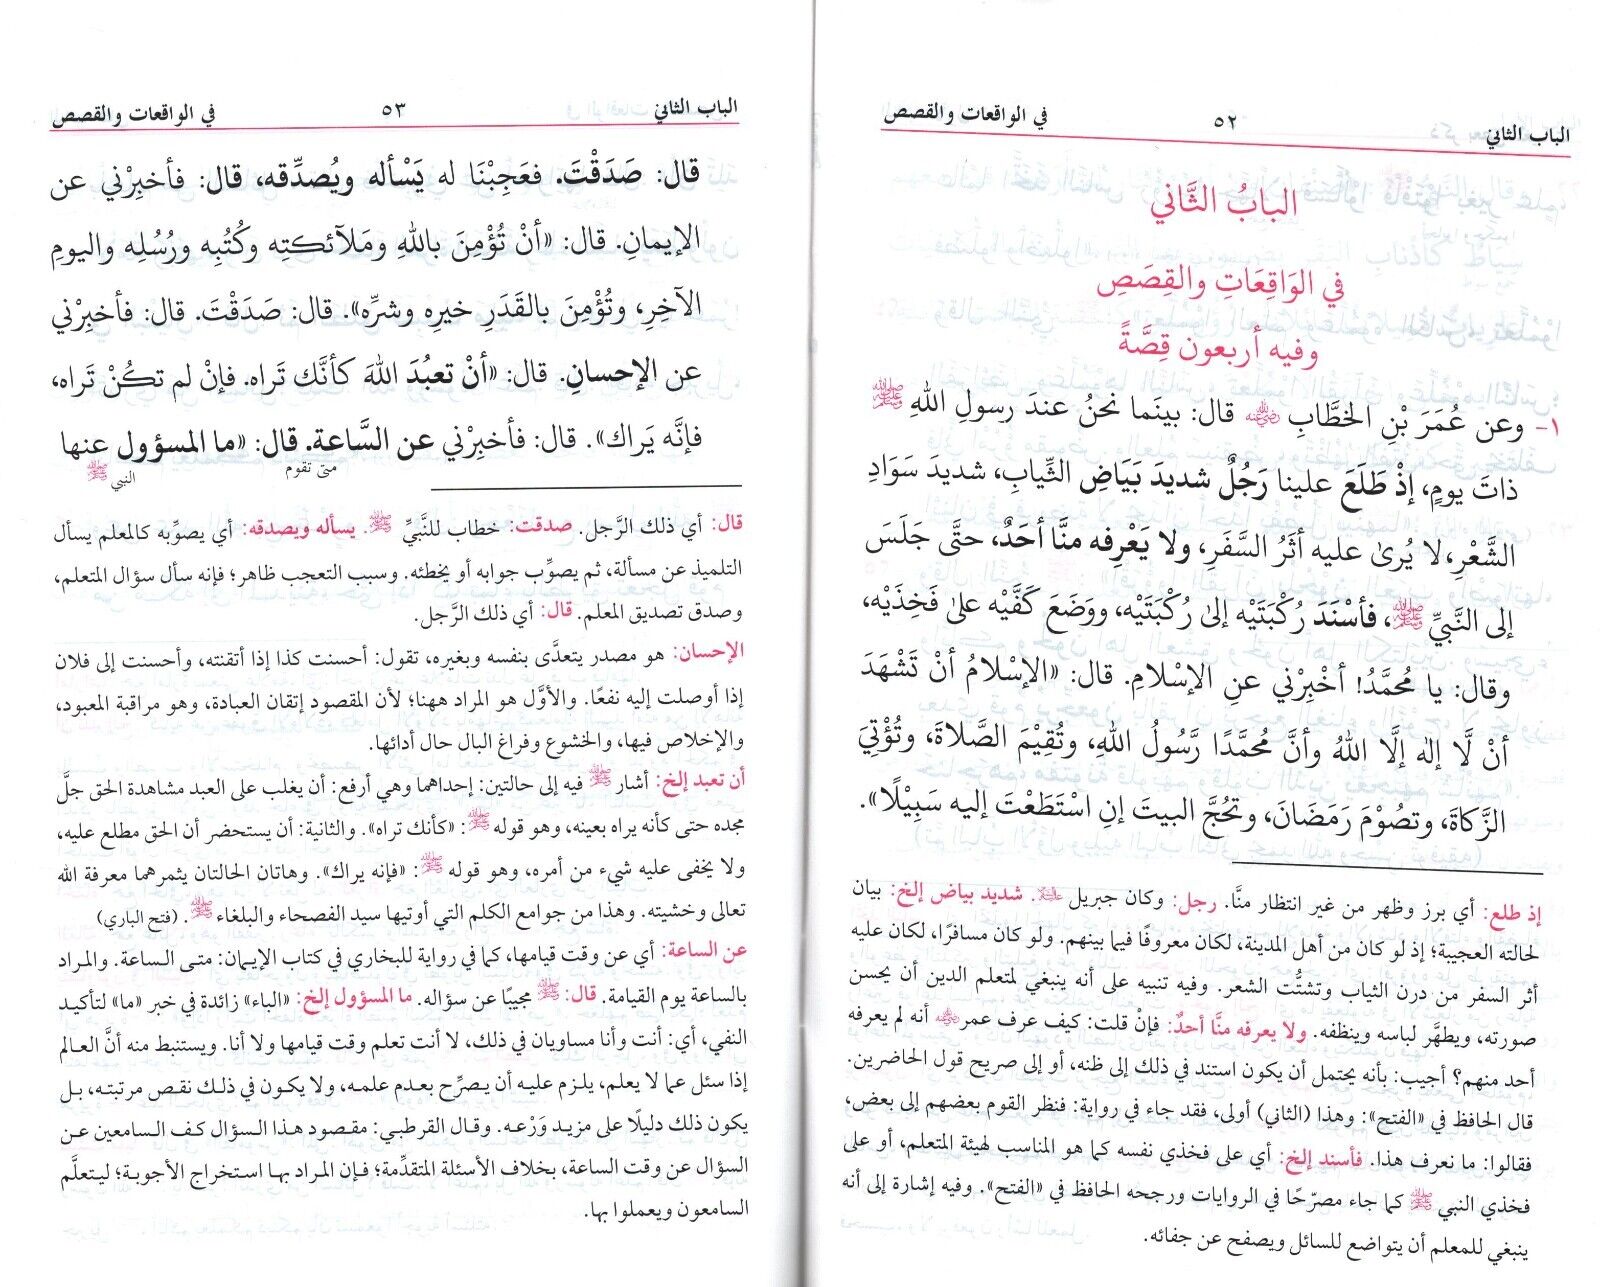 الباب الثاني ٥٢ في الواقعات والقصص
البابُ الثَّاني
في الوَاقِعَاتِ والقِصَصِ
وفيه أربعون قِصَّةً
١- وعن عُمَرَ بْنِ الخطَّابِ ﷺ قال: بينَما نحنُ عندَ رسولِ اللهِ ﷺ
ذاتَ يومٍ، إذْ طَلَعَ علينا رَجُلٌ شديدَ بَيَاضِ الثِّيابِ، شديدَ سَوَادِ
الشَّعْرِ، لا يُرىٰ عليه أثَرُ السَّفَرِ، ولا يَعْرِفه منَّا أحَدٌ، حتَّى جَلَسَ
إلى النَّبيِّ ﷺ، فأسْنَدَ رُكْبَتَيْه إلىٰ رُكْبَتَيْه، ووَضَعَ كَفَّيْه علىٰ فَخِذَيْه،
وقال: يا مُحمَّدُ! أخْبِرْني عنِ الإسْلامِ. قال: «الإسْلامُ أنْ تَشْهَدَ
أنْ لَّا إلٰهَ إلَّا اللهُ وأنَّ مُحمَّدًا رَّسُولُ اللهِ، وتُقِيْمَ الصَّلاةَ، وتُؤْتِيَ
الزَّكاةَ، وتصُوْمَ رَمَضَانَ، وتحُجَّ البيتَ إنِ اسْتَطَعْتَ إليه سَبِيْلًا».
إذ طلع: أي برز وظهر من غير انتظار منَّا. رجل: وكان جبريل عليه السلام. شديد بياض إلخ: بيان
لحالته العجيبة؛ إذ لو كان من أهل المدينة، لكان معروفًا فيما بينهم. ولو كان مسافرًا، لكان عليه
أثر السفر من درن الثياب وتشتُّت الشعر. وفيه تنبيه على أنه ينبغي لمتعلم الدين أن يحسن
صورته، ويطهَّر لباسه وينظفه. ولا يعرفه منَّا أحدٌ: فإنْ قلت: كيف عرف عمر رضي الله عنه أنه لم يعرفه
أحد منهم؟ أجيب: بأنه يحتمل أن يكون استند في ذلك إلى ظنه، أو إلى صريح قول الحاضرين.
قال الحافظ في «الفتح»: وهذا (الثاني) أولى، فقد جاء في رواية: فنظر القوم بعضهم إلى بعض،
فقالوا: ما نعرف هذا. فأسند إلخ: أي على فخذي نفسه كما هو المناسب لهيئة المتعلم، أو على
فخذي النبي ﷺ كما جاء مصرّحًا في الروايات ورجحه الحافظ في «الفتح». وفيه إشارة إلى أنه
ينبغي للمعلم أن يتواضع للسائل ويصفح عن جفائه.
الباب الثاني ٥٣ في الواقعات والقصص
قال: صَدَقْتَ. فعَجِبْنَا له يَسْأله ويُصدِّقه، قال: فأخبِرْني عن
الإيمانِ. قال: «أنْ تُؤْمِنَ باللهِ ومَلآئكتِه وكُتُبِه ورُسُلِه واليومِ
الآخِرِ، وتُؤْمِنَ بالقَدَرِ خيرِه وشرِّه». قال: صَدَقْتَ. قال: فأخبِرْني
عن الإحسانِ. قال: «أنْ تعبُدَ اللهَ كأنَّك تَراه. فإنْ لم تكُنْ تَراه،
فإنَّه يَراك». قال: فأخبِرْني عن السَّاعة. قال: «ما المسؤول عنها
متى تقوم النبي ﷺ
قال: أي ذلك الرَّجل. صدقت: خطاب للنَّبيِّ ﷺ. يسأله ويصدقه: أي يصوِّبه كالمعلم يسأل
التلميذ عن مسألة، ثم يصوِّب جوابه أو يخطئه. وسبب التعجب ظاهر؛ فإنه سأل سؤال المتعلم،
وصدق تصديق المعلم. قال: أي ذلك الرَّجل.
الإحسان: هو مصدر يتعدَّى بنفسه وبغيره، تقول: أحسنت كذا إذا أتقنته، وأحسنت إلى فلان
إذا أوصلت إليه نفعًا. والأوَّل هو المراد ههنا؛ لأن المقصود إتقان العبادة، وهو مراقبة المعبود،
والإخلاص فيها، والخشوع وفراغ البال حال أدائها.
أن تعبد إلخ: أشار ﷺ فيه إلى حالتين: إحداهما وهي أرفع: أن يغلب على العبد مشاهدة الحق جلَّ
مجده حتى كأنه يراه بعينه، وهو قوله ﷺ: «كأنك تراه». والثانية: أن يستحضر أن الحق مطلع عليه،
ولا يخفى عليه شيء من أمره، وهو قوله ﷺ: «فإنه يراك». وهاتان الحالتان يثمرهما معرفة الله
تعالى وخشيته. وهذا من جوامع الكلم التي أوتيها سيد الفصحاء والبلغاء ﷺ. (فتح الباري)
عن الساعة: أي عن وقت قيامها، كما في رواية للبخاري في كتاب الإيمان: متى الساعة. والمراد
بالساعة يوم القيامة. قال: ﷺ مجيبًا عن سؤاله. ما المسؤول إلخ: «الباء» زائدة في خبر «ما» لتأكيد
النفي، أي: أنت وأنا مساويان في ذلك، لا أنت تعلم وقت قيامها ولا أنا. ويستنبط منه أنَّ العالم
إذا سئل عما لا يعلم، يلزم عليه أن يصرِّح بعدم علمه، ولا يكون في ذلك نقص مرتبته، بل
يكون ذلك دليلًا على مزيد وَرْعه. وقال القرطبي: مقصود هذا السؤال كف السامعين عن
السؤال عن وقت الساعة، بخلاف الأسئلة المتقدِّمة؛ فإن المراد بها استخراج الأجوبة؛ ليتعلَّم
السامعون ويعملوا بها.